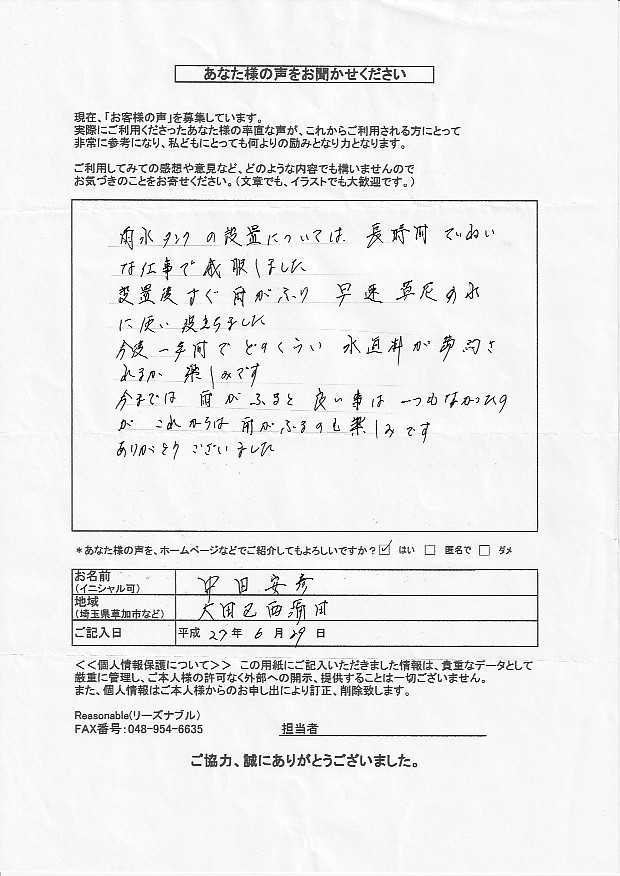 あなた様の声をお聞かせください
現在、「お客様の声」を募集しています。
実際にご利用くださったあなた様の率直な声が、これからご利用される方にとって
非常に参考になり、私どもにとっても何よりの励みとなります。
ご利用してみての感想や意見など、どのような内容でも構いませんので
お気づきのことをお寄せください。(文章でも、イラストでも大歓迎です。)
雨水タンクの設置については 長時間 ていねい
な仕事で感服しました
設置後すぐ雨がふり 早速 草花の水
に使い役立ちました
今後一年間でどのくらい 水道料が節約さ
れるか 楽しみです
今までは 雨がふると 良い事は 一つもなかったの
が これからは 雨がふるのも楽しみです
ありがとうございました
*あなた様の声を、ホームページなどでご紹介してもよろしいですか?☑ はい □ 匿名で □ ダメ
お名前
(イニシャル可)
田安彦
地域
(埼玉県草加市など)
大田区西蒲田
ご記入日 平成 27年 6月 29日
<<個人情報保護について>> この用紙にご記入いただきました情報は、貴重なデータとして
厳重に管理し、ご本人様の許可なく外部への開示、提供することは一切ございません。
また、個人情報はご本人様からのお申し出により訂正、削除致します。
Reasonable(リーズナブル)
FAX番号:048-954-6635 担当者
ご協力、誠にありがとうございました。